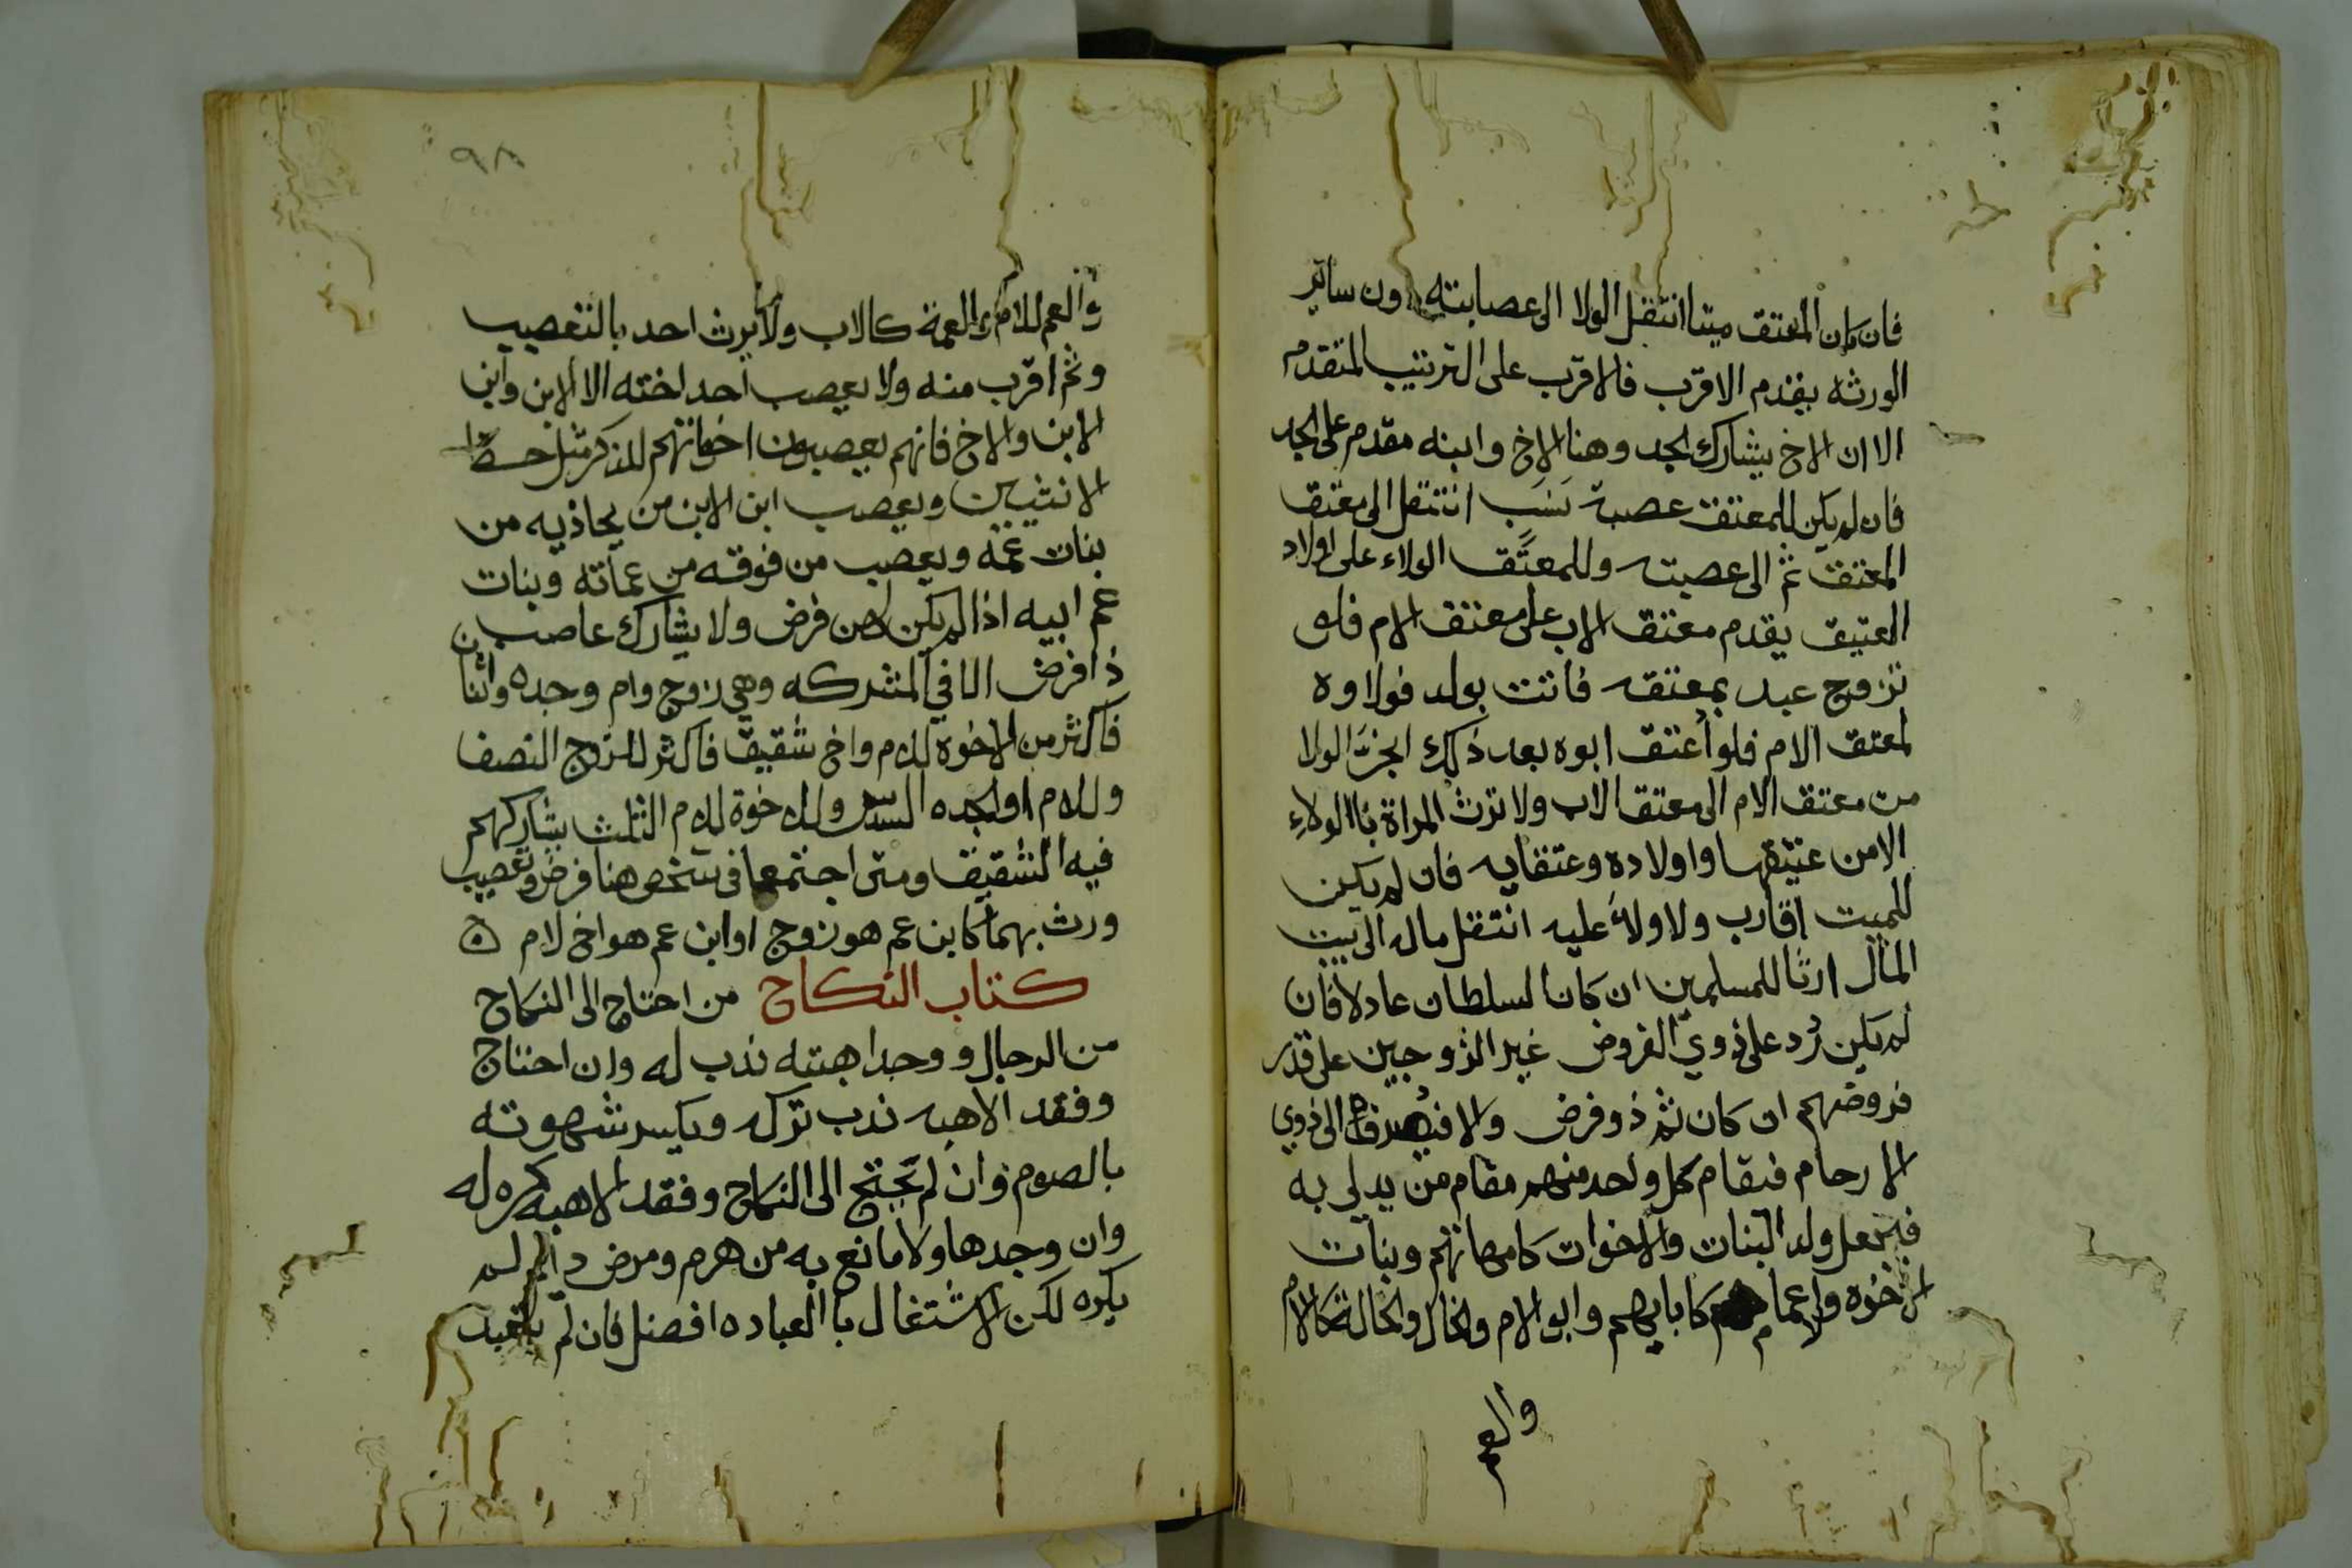 فان كان المعتق ميتا انتقل الولا الى عصابته دون ساير
الورثه يقدم الاقرب فالاقرب على الترتيب المتقدم
الا ان الاخ يشارك الجد وهنا الاخ وابنه مقدم على الجد
فان لم يكن للمعتق عصبة نسب انتقل الى معتق
المعتق ثم الى عصبته وللمعتق الولاء على اولاد
العتيق يقدم معتق الاب على معتق الام فلو
تزوج عبد بمعتقه فاتت بولد فولاوه
لمعتق الام فلو أعتق ابوه بعد ذلك انجر الولا
من معتق الام الى معتق الاب ولا ترث المراة باالولاء
الا من عتيقها واولاده وعتقايه فان لم يكن
للميت اقارب ولا ولاً عليه انتقل ماله الى بيت
المال ارثا للمسلمين ان كان السلطان عادلا فان
لم يكن رُد على ذوي الفروض غير الزوجين على قدر
فروضهم ان كان ثم ذو فرض والا فيصرف الى ذوي
الارحام فيقام كل واحد منهم مقام من يدلي به
فيجعل ولد البنات والاخوات كامهاتهم وبنات
الاخوه والاعمام كابايهم وابو الام والخال والخالة كالام
والعم
٩٨
والعم للام والعمة كالاب ولا يرث احد بالتعصيب
وثم اقرب منه ولا يعصب احد اخته الا الابن وابن
الابن والاخ فانهم يعصبون اخواتهم للذكر مثل حظ
الانثيين ويعصب ابن الابن من يحاذيه من
بنات عمه ويعصب من فوقه من عماته وبنات
عم ابيه اذا لم يكن لهن فرض ولا يشارك عاصب
ذا فرض الا في المشركه وهي زوج وام وجده واثنا
فاكثر من الاخوة للام واخ شقيق فاكثر للزوج النصف
وللام او الجده السدس وللاخوة للام الثلث يشاركهم
فيه الشقيق ومتى اجتمعا في شخص هنا فرض وتعصيب
ورث بهما كابن عم هو زوج او ابن عم هو اخ لام ه
كتاب النكاح من احتاج الى النكاح
من الرجال ووجد اهبته ندب له وان احتاج
وفقد الاهبه ندب تركه ويكسر شهوته
بالصوم وان لم يحتج الى النكاح وفقد الاهبه كره له
وان وجدها ولا مانع به من هرم ومرض دايم لم
يكره لكن الاشتغال باالعباده افضل فان لم يتعبد